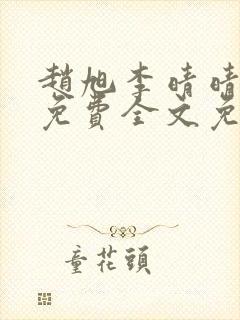 趙旭李晴晴
免費全文免
童花頭